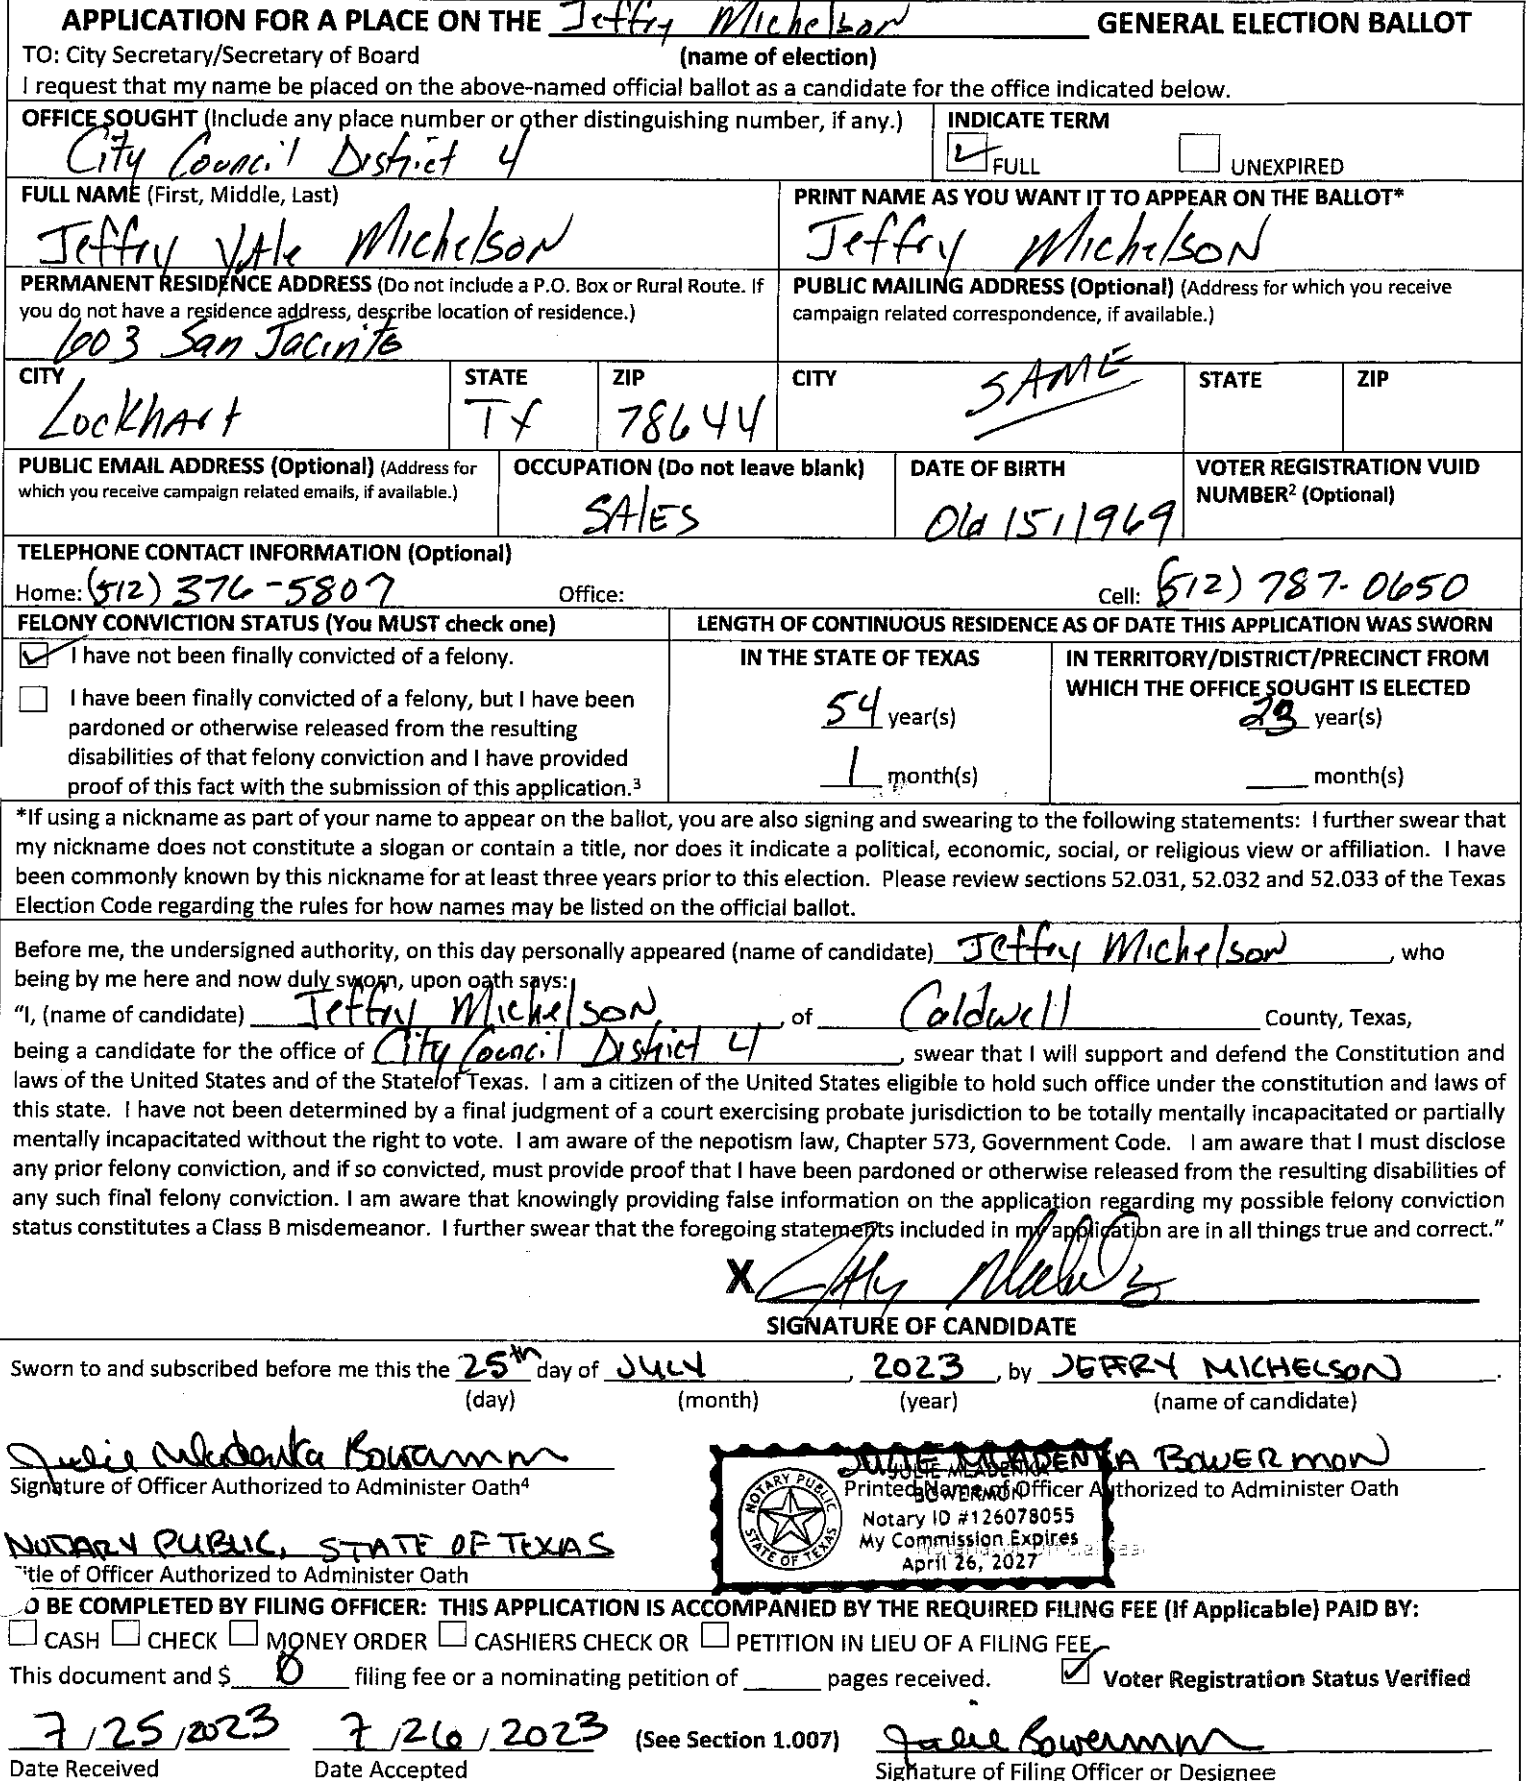 APPLICATION FOR A PLACE ON THE Jeffry Michelson GENERAL ELECTION BALLOT
TO: City Secretary/Secretary of Board (name of election)
I request that my name be placed on the above-named official ballot as a candidate for the office indicated below.
OFFICE SOUGHT (Include any place number or other distinguishing number, if any.) INDICATE TERM
City Council District 4 FULL UNEXPIRED
FULL NAME (First, Middle, Last) PRINT NAME AS YOU WANT IT TO APPEAR ON THE BALLOT*
Jeffry Vale Michelson Jeffry Michelson
PERMANENT RESIDENCE ADDRESS (Do not include a P.O. Box or Rural Route. If PUBLIC MAILING ADDRESS (Optional) (Address for which you receive
you do not have a residence address, describe location of residence.) campaign related correspondence, if available.)
1003 San Jacinto
CITY STATE ZIP CITY SAME STATE ZIP
Lockhart TX 78644
PUBLIC EMAIL ADDRESS (Optional) (Address for OCCUPATION (Do not leave blank) DATE OF BIRTH VOTER REGISTRATION VUID
which you receive campaign related emails, if available.) NUMBER² (Optional)
SALES 06/15/1969
TELEPHONE CONTACT INFORMATION (Optional)
Home: (512) 376-5807 Office: Cell: (512) 787-0650
FELONY CONVICTION STATUS (You MUST check one) LENGTH OF CONTINUOUS RESIDENCE AS OF DATE THIS APPLICATION WAS SWORN
I have not been finally convicted of a felony. IN THE STATE OF TEXAS IN TERRITORY/DISTRICT/PRECINCT FROM
WHICH THE OFFICE SOUGHT IS ELECTED
I have been finally convicted of a felony, but I have been 54 year(s) 23 year(s)
pardoned or otherwise released from the resulting
disabilities of that felony conviction and I have provided 1 month(s) month(s)
proof of this fact with the submission of this application.³
*If using a nickname as part of your name to appear on the ballot, you are also signing and swearing to the following statements: I further swear that
my nickname does not constitute a slogan or contain a title, nor does it indicate a political, economic, social, or religious view or affiliation. I have
been commonly known by this nickname for at least three years prior to this election. Please review sections 52.031, 52.032 and 52.033 of the Texas
Election Code regarding the rules for how names may be listed on the official ballot.
Before me, the undersigned authority, on this day personally appeared (name of candidate) Jeffry Michelson, who
being by me here and now duly sworn, upon oath says:
"I, (name of candidate) Jeffry Michelson, of Caldwell County, Texas,
being a candidate for the office of City Council District 4, swear that I will support and defend the Constitution and
laws of the United States and of the State of Texas. I am a citizen of the United States eligible to hold such office under the constitution and laws of
this state. I have not been determined by a final judgment of a court exercising probate jurisdiction to be totally mentally incapacitated or partially
mentally incapacitated without the right to vote. I am aware of the nepotism law, Chapter 573, Government Code. I am aware that I must disclose
any prior felony conviction, and if so convicted, must provide proof that I have been pardoned or otherwise released from the resulting disabilities of
any such final felony conviction. I am aware that knowingly providing false information on the application regarding my possible felony conviction
status constitutes a Class B misdemeanor. I further swear that the foregoing statements included in my application are in all things true and correct."
X
SIGNATURE OF CANDIDATE
Sworn to and subscribed before me this the 25th day of JULY, 2023, by JEFFRY MICHELSON.
(day) (month) (year) (name of candidate)
Julie Mladenka Bowermon JULIE MLADENKA BOWERMON
Signature of Officer Authorized to Administer Oath⁴ Printed Name of Officer Authorized to Administer Oath
NOTARY PUBLIC STATE OF TEXAS
JULIE MLADENKA
BOWERMON
Notary ID #126078055
My Commission Expires
April 26, 2027
NOTARY PUBLIC, STATE OF TEXAS
Title of Officer Authorized to Administer Oath
O BE COMPLETED BY FILING OFFICER: THIS APPLICATION IS ACCOMPANIED BY THE REQUIRED FILING FEE (If Applicable) PAID BY:
CASH CHECK MONEY ORDER CASHIERS CHECK OR PETITION IN LIEU OF A FILING FEE
This document and $ 0 filing fee or a nominating petition of pages received. Voter Registration Status Verified
7/25/2023 7/26/2023 (See Section 1.007) Julie Bowermon
Date Received Date Accepted Signature of Filing Officer or Designee